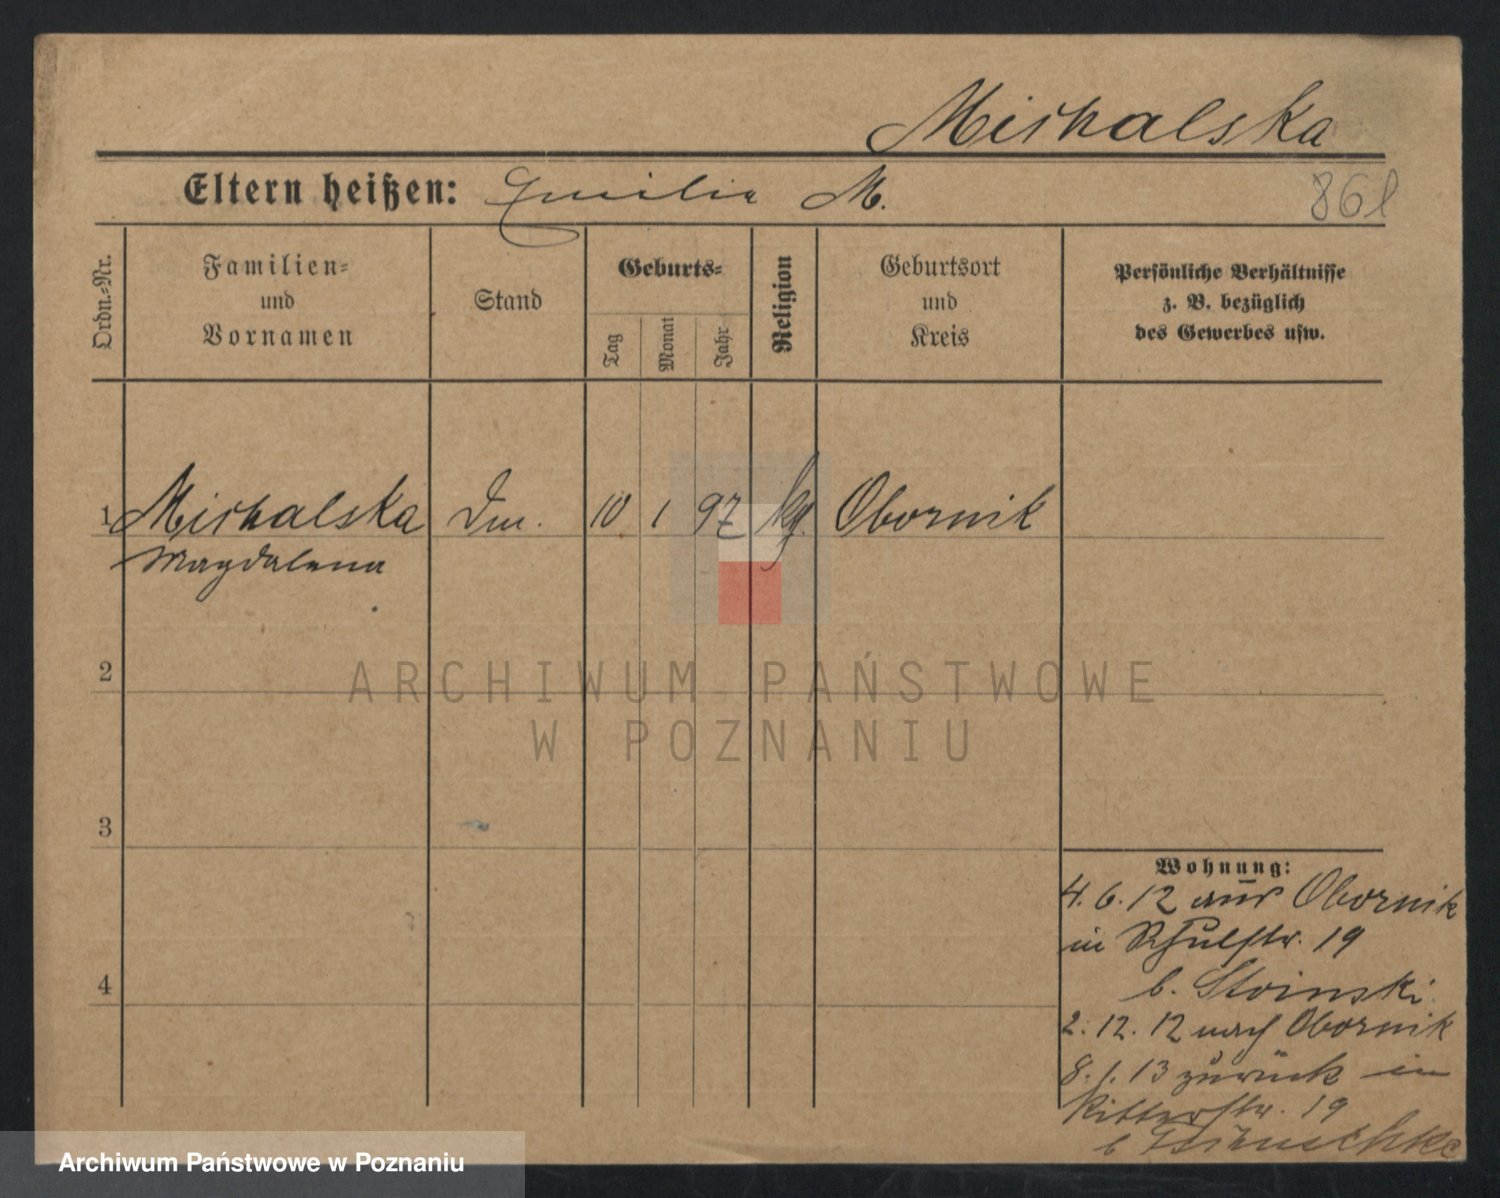 Michalska
Eltern heißen: Emilie M.
86
Ordn.-Nr.
Familien-
und
Vornamen
Stand
Geburts-
Tag
Monat
Jahr
Religion
Geburtsort
und
Kreis
Persönliche Verhältnisse
z. B. bezüglich
des Gewerbes usw.
1 Michalska 10 1 97 Obornik
Magdalena
2
ARCHIWUM PAŃSTWOWE
W POZNANIU
3
4
Wohnung:
4. 6. 12 aus Obornik
in Schulstr. 19
b. Stoinski
2. 12. 12 nach Obornik
8. 1. 13 zurück in
Ritterstr. 19
b
Archiwum Państwowe w Poznaniu